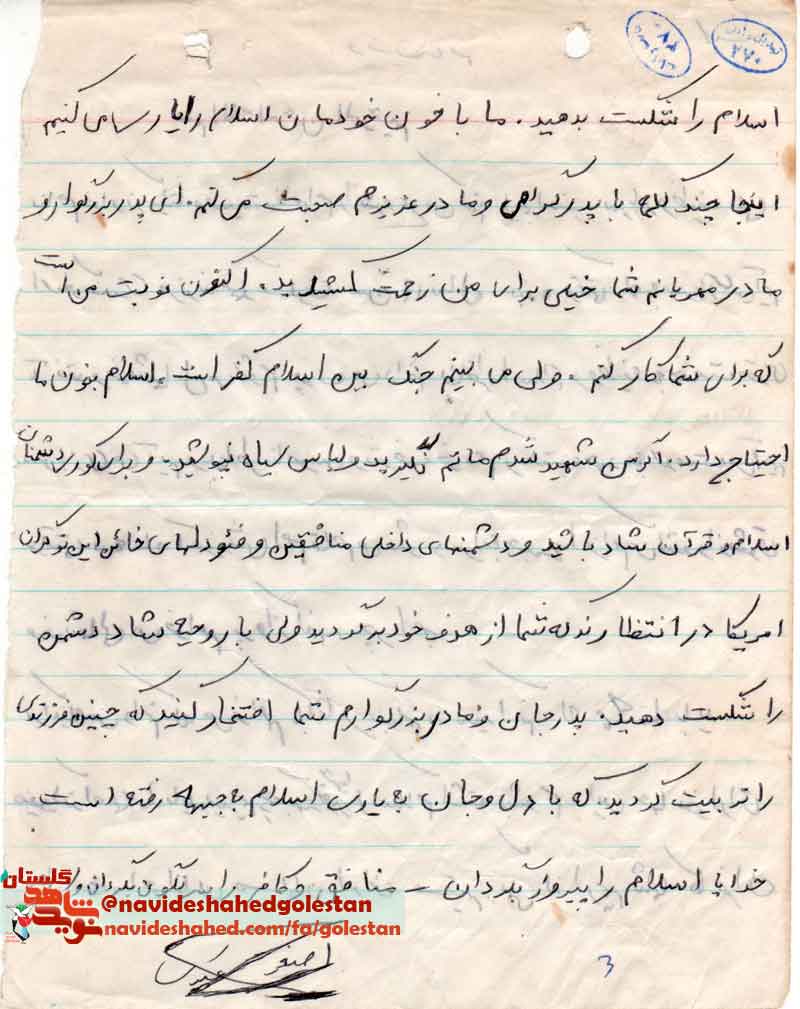 اسلام را شکست بدهید. ما با خون خودمان اسلام را یاری می کنیم
اینجا چند کلمه با پدر گرامی و مادر عزیزم صحبت می کنم. ای پدر بزرگوار و
مادر مهربانم شما خیلی برای من زحمت کشیدید. اکنون نوبت من است
که برای شما کار کنم. ولی می بینم جنگ بین اسلام کفر است. اسلام بخون ما
احتیاج دارد. اگر من شهید شدم ماتم نگیرید و لباس سیاه نپوشید. و برای کوری دشمنان
اسلام و قرآن شاد باشید و دشمنهای داخلی منافقین و فئودلهای خائن این نوکران
امریکا در انتظارند که شما از هدف خود برگردید ولی با روحیه شاد دشمن
را شکست دهید. پدر جان و مادر بزرگوارم شما افتخار کنید که چنین فرزندی
را تربیت کردید که با دل و جان به یاری اسلام به جبهه رفته است.
خدایا اسلام را پیروز بگردان - منافق و کافر را سرنگون بگردان
گلستان
نوید شاهد
@navideshahedgolestan
navideshahed.com/fa/golestan
اصغر
3